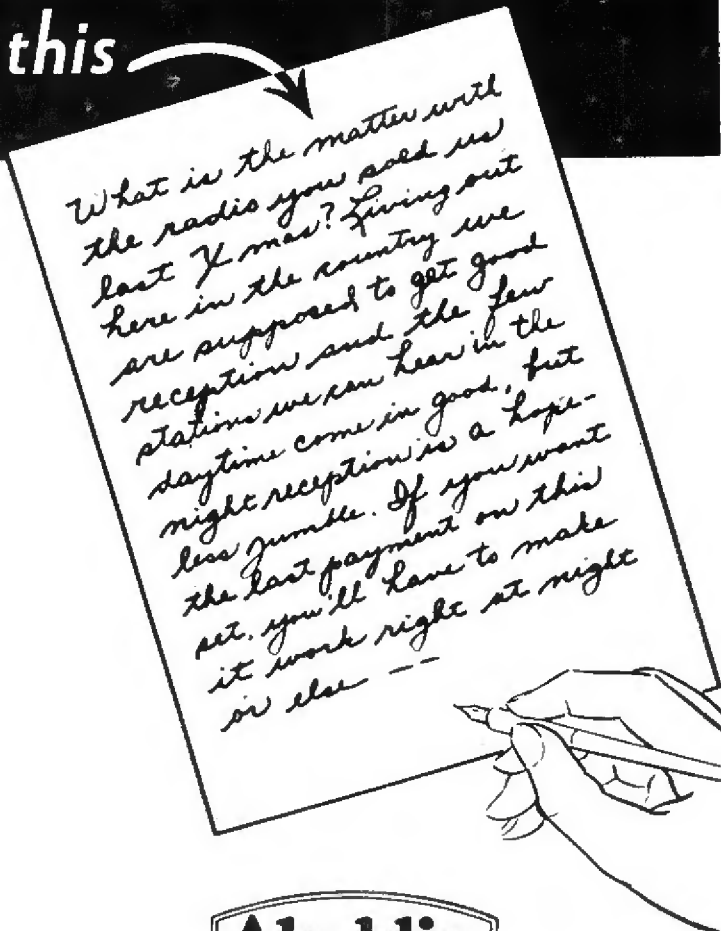 this
What is the matter with
the radio you sold us
last Xmas? Living out
here in the country we
are supposed to get good
reception and the few
stations we can hear in the
daytime come in good, but
night reception is a hope-
less jumble. If you want
the last payment on this
set, you'll have to make
it work right at night
or else --